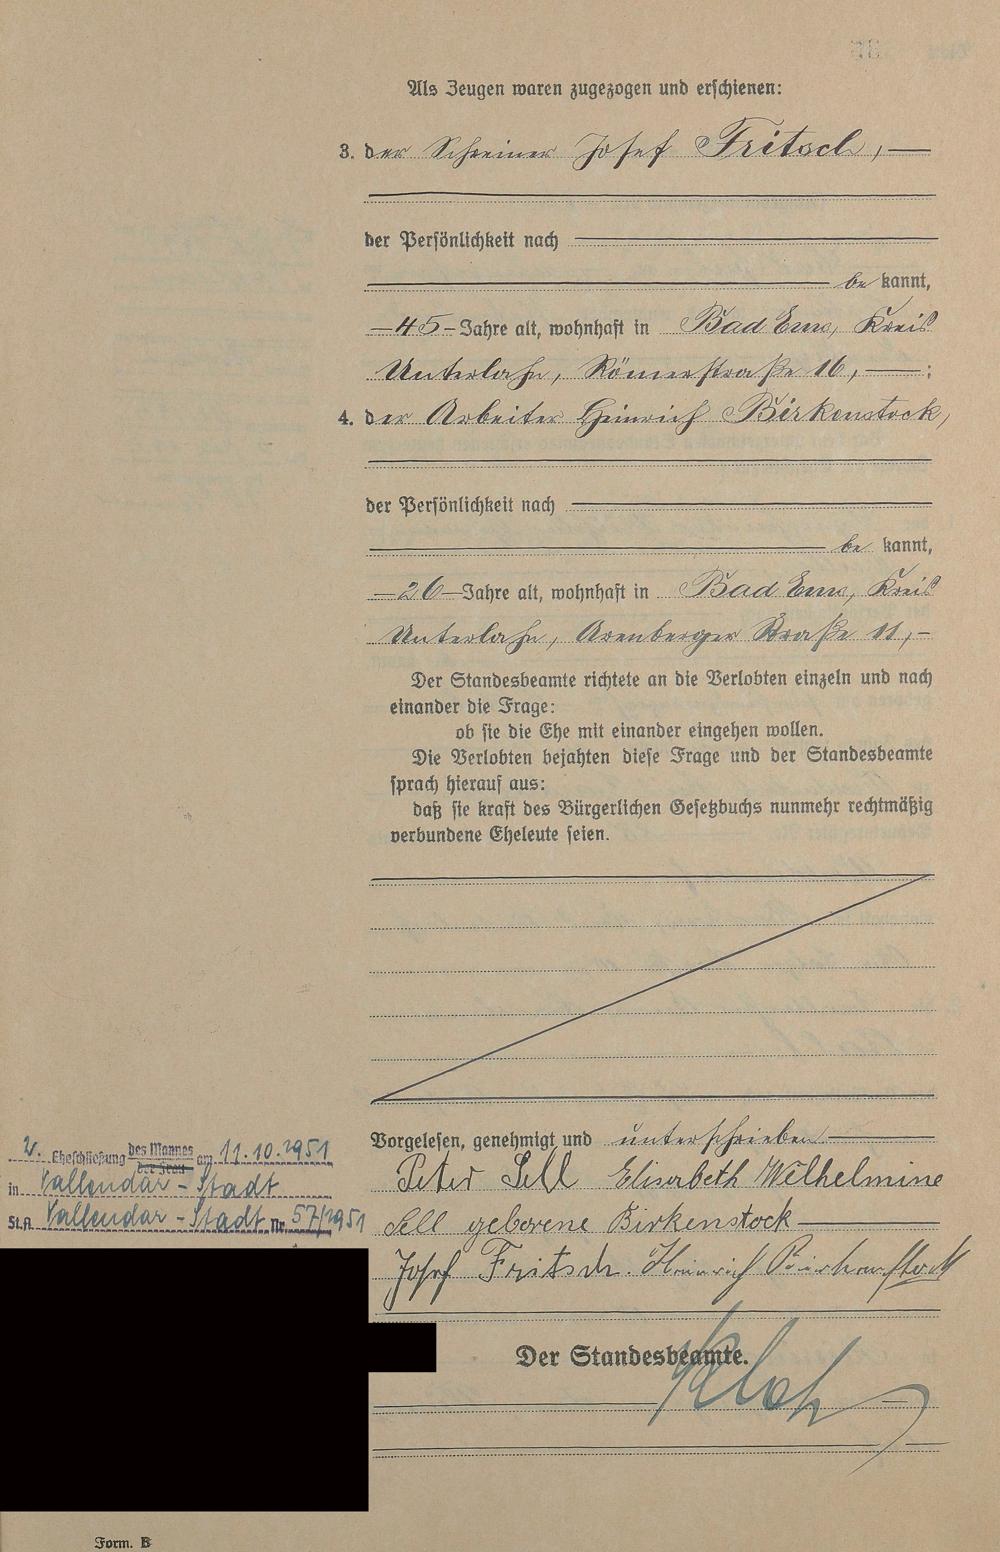 Als Zeugen waren zugezogen und erschienen:
3. der Schreiner Josef Fritsch, —
der Persönlichkeit nach
be kannt,
— 45 — Jahre alt, wohnhaft in Bad Ems, Kreis
Unterlahn, Römerstraße 16, — ;
4. der Arbeiter Heinrich Birkenstock,
der Persönlichkeit nach
be kannt,
— 26 — Jahre alt, wohnhaft in Bad Ems, Kreis
Unterlahn, Arenberger Straße 11, —
Der Standesbeamte richtete an die Verlobten einzeln und nach
einander die Frage:
ob sie die Ehe mit einander eingehen wollen.
Die Verlobten bejahten diese Frage und der Standesbeamte
sprach hierauf aus:
daß sie kraft des Bürgerlichen Gesetzbuchs nunmehr rechtmäßig
verbundene Eheleute seien.
Vorgelesen, genehmigt und unterschrieben —
Peter Sell Elisabeth Wilhelmine
Sell geborene Birkenstock —
Josef Fritsch. Heinrich Birkenstock
Der Standesbeamte.
2. Eheschließung des Mannes der Frau am 11.10.1951
in Vallendar - Stadt
St.A. Vallendar - Stadt Nr. 57/1951
Form. B